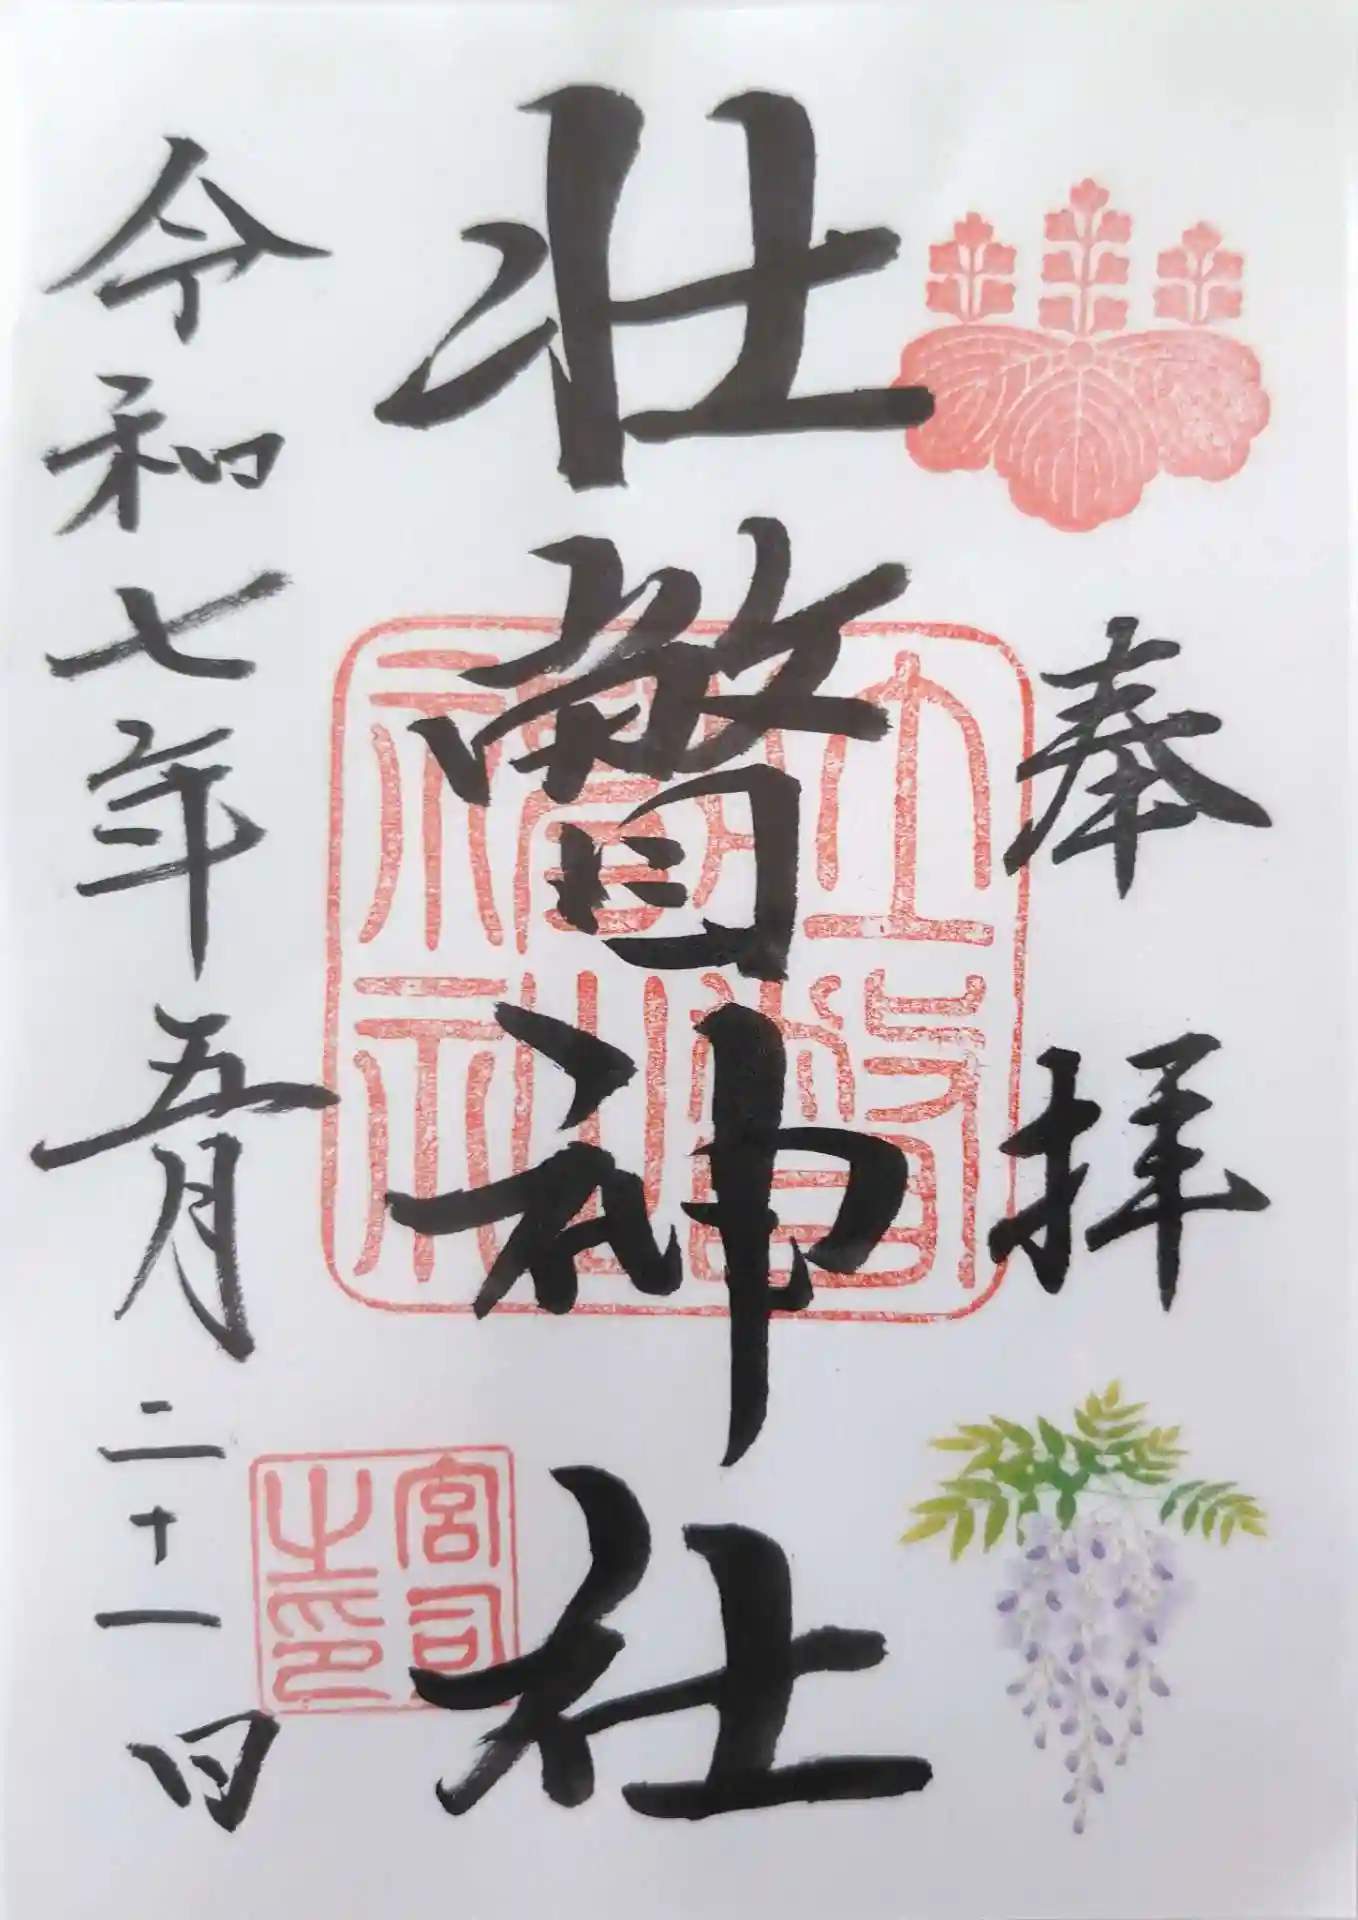 奉拝
壮瞥神社
壮瞥
神社
令和七年五月二十一日
宮司
之印